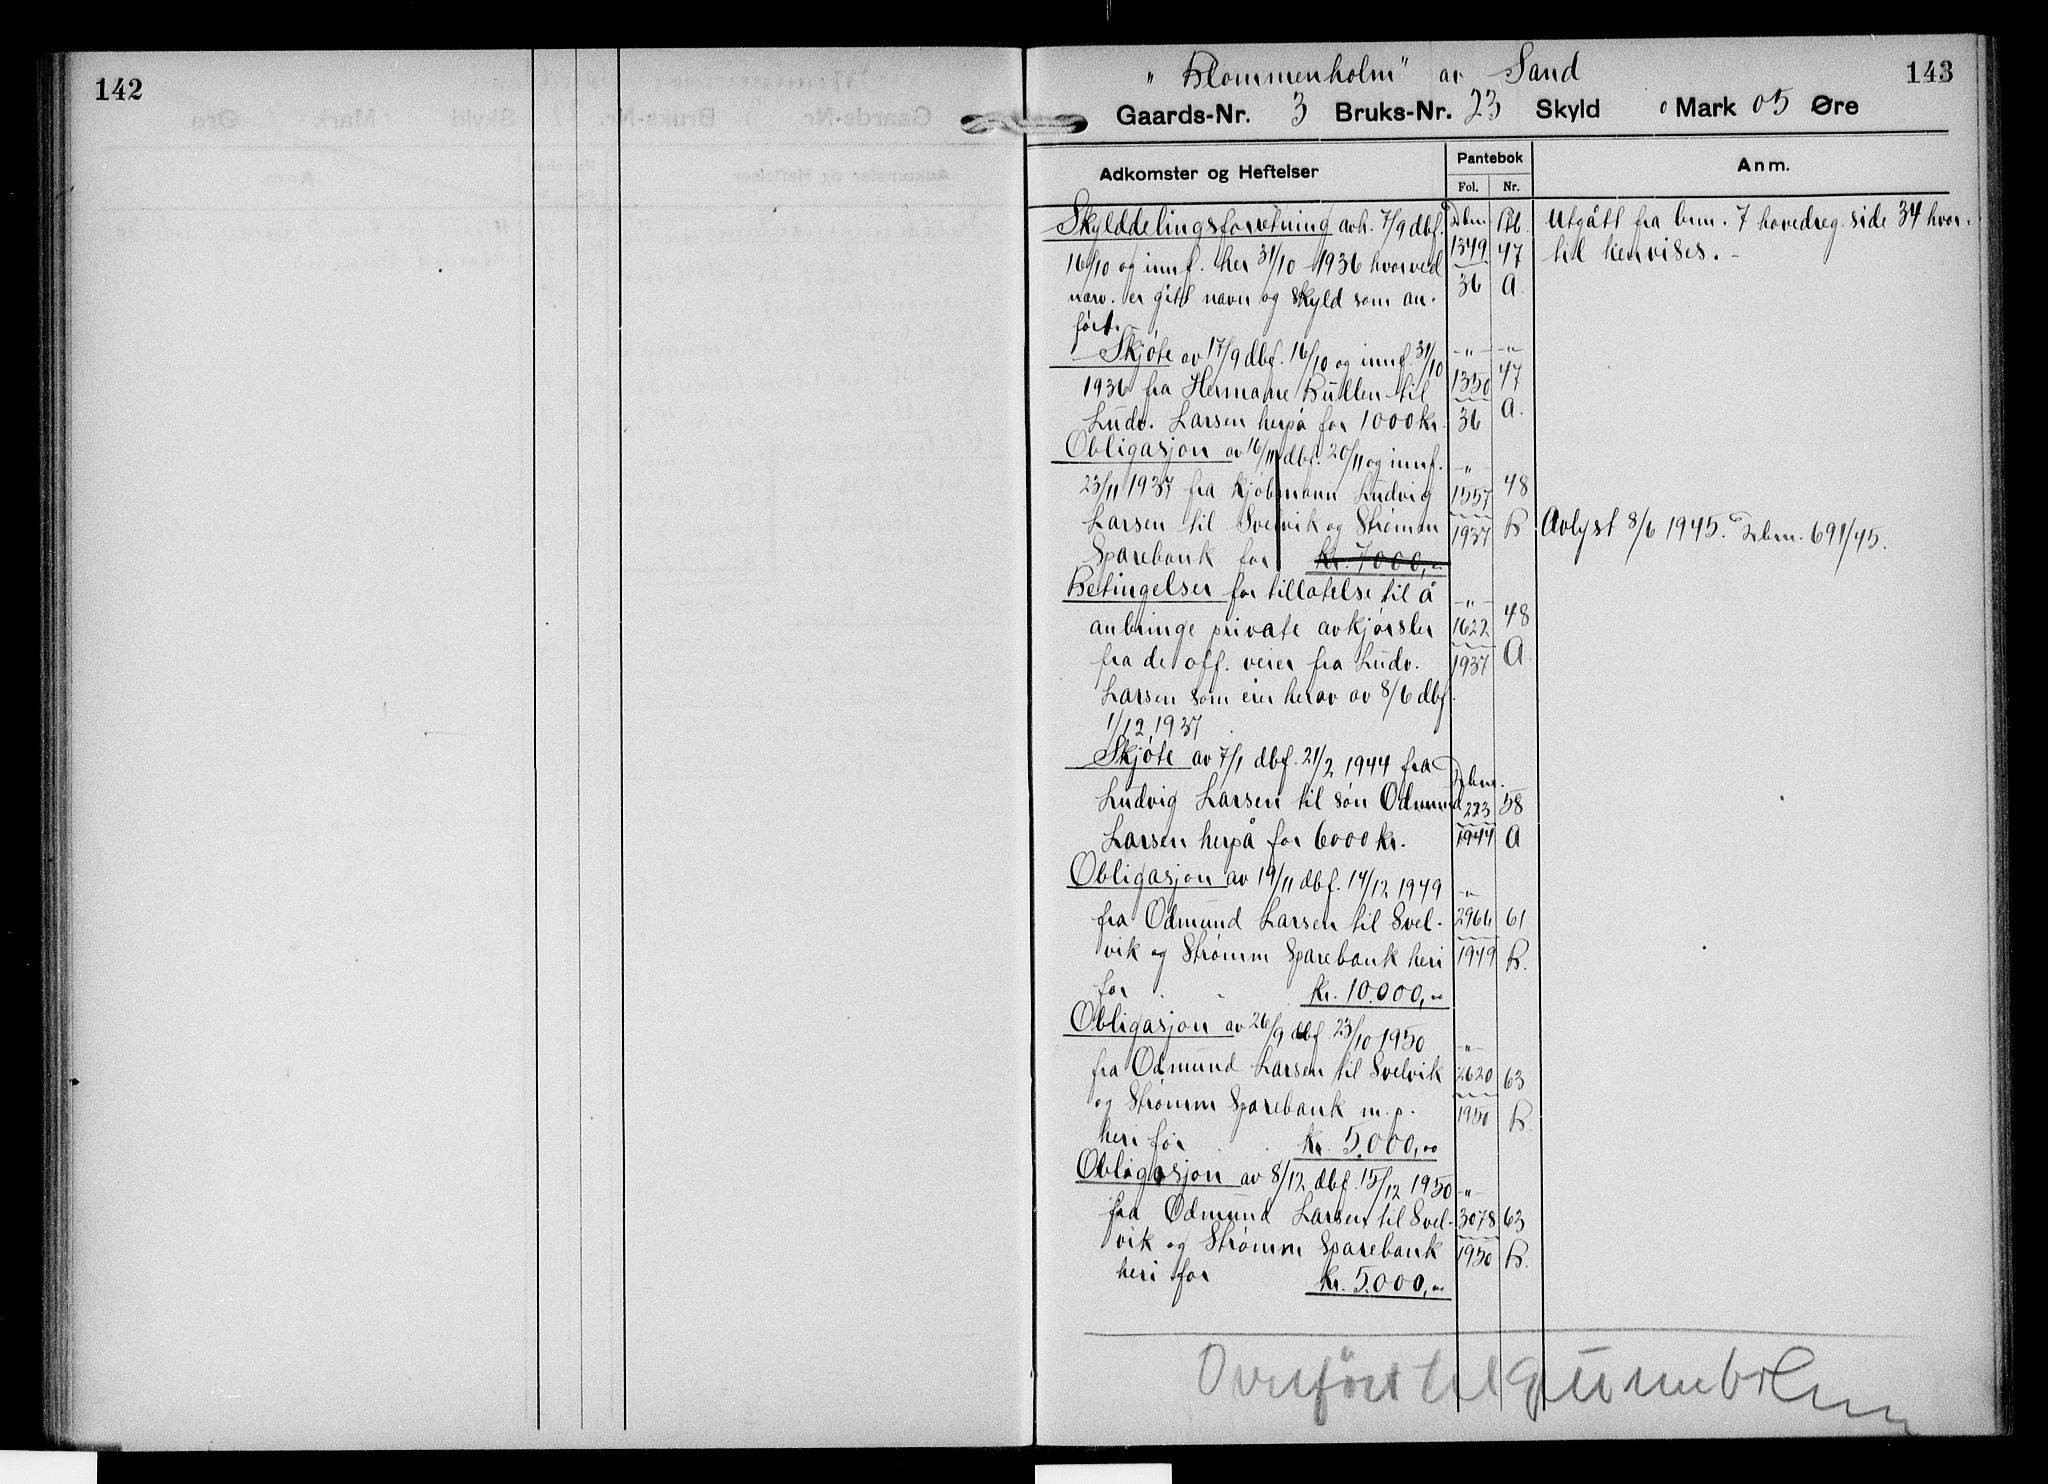 142
143
"Blommenholm" av Sand
Gaards-Nr. 3 Bruks-Nr. 23 Skyld 0 Mark 05 Øre
Adkomster og Heftelser
Pantebok
Fol. Nr.
Anm.
Skylddelingsforretning avh. 7/9 dbf. Dbnr. Pb. Utgått fra bnr. 7 hovedreg. side 34 hvor-
16/10 og innf. her 31/10 1936 hvorved 1349 47 til henvises. -
narv. er gitt navn og skyld som an- 36 A.
ført.
Skjøte av 17/9 dbf. 16/10 og innf. 31/10 -"- -"-
1936 fra Hermane Bullen til 1350 47
Ludv. Larsen herpå for 1000 kr. 36 A.
Obligasjon av 16/11 dbf. 20/11 og innf. -"-
23/11 1937 fra kjøbmann Ludvig 1557 48
Larsen til Svelvik og Strømm 1937 B Avlyst 8/6 1945. Dbnr. 691/45.
Sparebank for kr. 7000,00
Betingelser for tillatelse til å -"-
anbringe private avkjørsler 1622 48
fra de off. veier fra Ludv. 1937 A.
Larsen som eier herav av 8/6 dbf.
1/12 1937
Skjøte av 7/1 dbf. 21/2 1944 fra Dbnr.
Ludvig Larsen til søn Odmund 223 58
Larsen herpå for 6000 kr. 1944 A
Obligasjon av 19/11 dbf. 14/12 1949 -"-
fra Odmund Larsen til Svel- 2966 61
vik og Strømm Sparebank heri 1949 B.
for kr. 10.000,00
Obligasjon av 26/9 dbf 23/10 1950 -"-
fra Odmund Larsen til Svelvik 2620 63
og Strømm Sparebank m. p. 1950 B.
heri for kr. 5.000,00
Obligasjon av 8/12 dbf. 15/12 1950 -"-
fra Odmund Larsen til Svel- 3078 63
vik og Strømm Sparebank 1950 B.
heri for kr. 5.000,00
Overført til